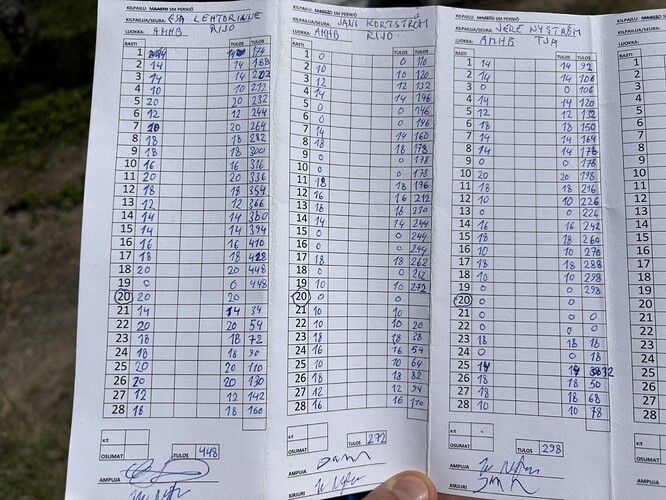 KILPAILU: MAASTO SM PERNIÖ
KILPAILIJA/SEURA: ESA LEHTORINNE
LUOKKA: AMHB RIJO
RASTI TULOS
1 174
2 14 14 188
3 14 14 202
4 10 10 212
5 20 20 232
6 12 12 244
7 20 20 264
8 18 18 282
9 18 18 300
10 16 16 316
11 20 20 336
12 18 18 354
13 12 12 366
14 14 14 380
15 14 14 394
16 16 16 410
17 18 18 428
18 20 20 448
19 0 0 448
20 20 20
21 14 14 34
22 20 20 54
23 18 18 72
24 18 18 90
25 20 20 110
26 20 20 130
27 12 12 142
28 18 18 160
KIT
OSUMAT TULOS 448
AMPUJA
KILPAILU: MAASTO SM PERNIÖ
KILPAILIJA/SEURA: JANI KORTSTRÖM
LUOKKA: AMHB RIJO
RASTI TULOS
1 0 0 110
2 10 10 120
3 12 12 132
4 14 14 146
5 0 0 146
6 0 0 146
7 14 14 160
8 18 18 178
9 0 0 178
10 0 0 178
11 18 18 196
12 16 16 212
13 18 18 230
14 14 14 244
15 0 0 244
16 0 0 244
17 18 18 262
18 0 0 262
19 10 10 272
20 0 0
21 10 10
22 10 10 20
23 18 18 38
24 16 16 54
25 10 10 64
26 18 18 82
27 12 12 94
28 16 16 110
KIT
OSUMAT TULOS 272
AMPUJA
KIRJURI
KILPAILU: MAASTO SM PERNIÖ
KILPAILIJA/SEURA: JERE NYSTRÖM
LUOKKA: AMHB TJA
RASTI TULOS
1 14 14 92
2 14 14 106
3 0 0 106
4 14 14 120
5 12 12 132
6 18 18 150
7 14 14 164
8 14 14 178
9 0 0 178
10 20 20 198
11 18 18 216
12 10 10 226
13 0 0 226
14 16 16 242
15 18 18 260
16 10 10 270
17 18 18 288
18 10 10 298
19 0 0 298
20 0 0
21 0 0 0
22 0 0 0
23 18 18 18
24 0 0 18
25 14 14 32
26 18 18 50
27 18 18 68
28 10 10 78
KIT
OSUMAT TULOS 298
AMPUJA
KIRJURI
KILPAILU:
KILPAILIJA
LUOKKA:
RASTI
1
2
3
4
5
6
7
8
9
10
11
12
13
14
15
16
17
18
19
20
21
22
23
24
25
26
27
28